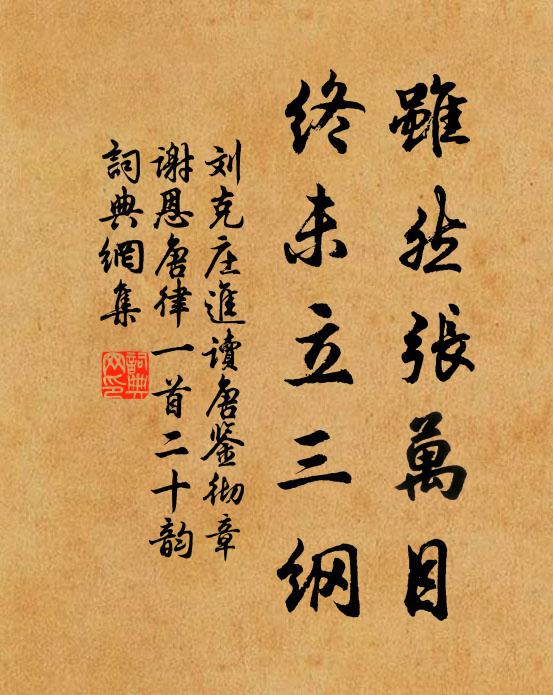 雖然張萬目
終未立三纲
刘克庄進讀唐鉴彻章
谢恩唐律一首二十韵
詞典網集
詞典
网印